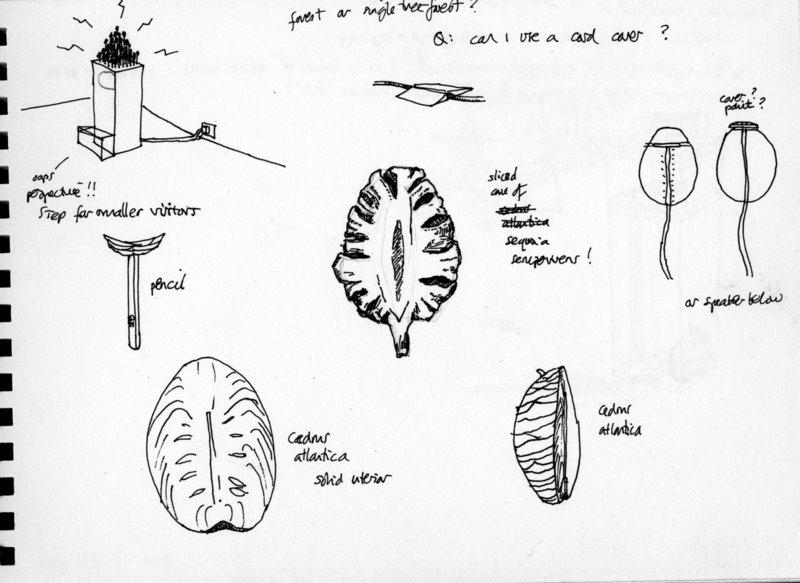 forest or single tree forest?
Q: can I use a cord cover ?
cover?
paint?
oops
perspective!!
Step for smaller visitors
sliced
one of
cedrus
atlantica
sequoia
sempervirens!
pencil
or speaker below
cedrus
atlantica
solid interior
cedrus
atlantica